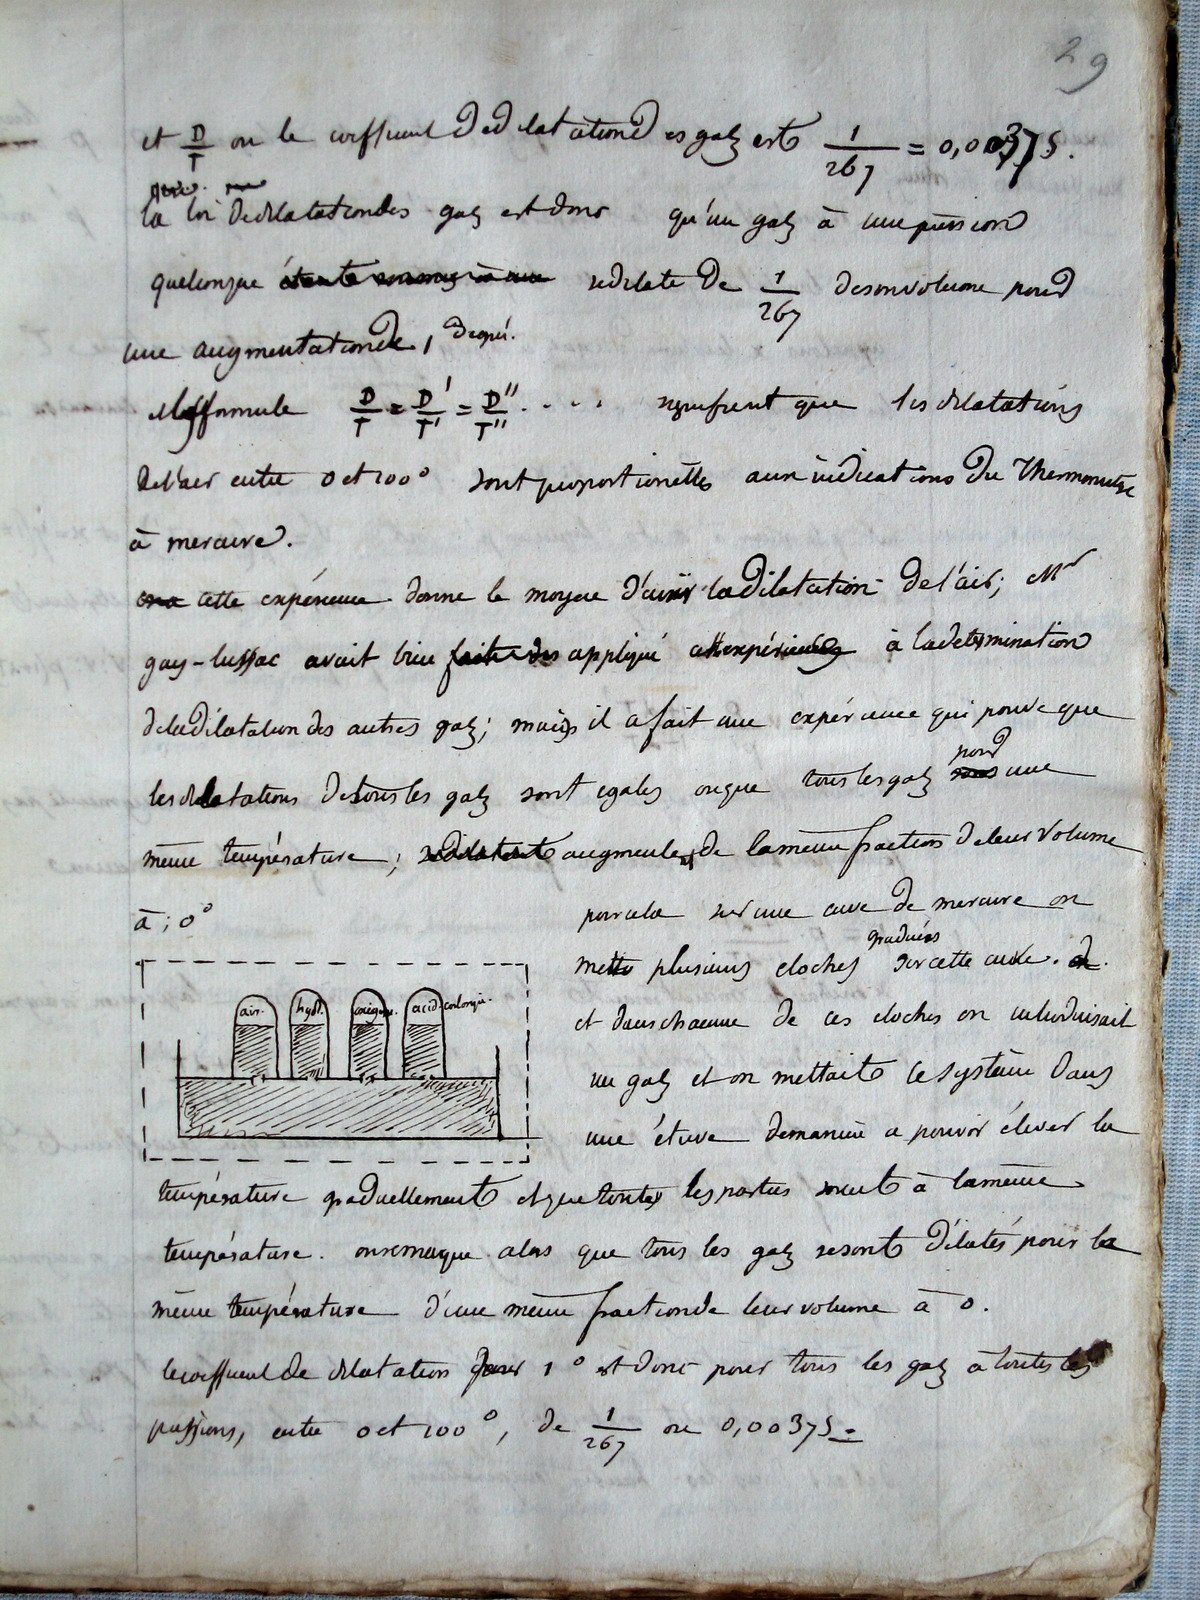 29
et D/T ou le coefficient de dilatation des gaz est 1/267 = 0,00375.
la loi de dilatation des gaz est donc qu'un gaz à une pression
quelconque se dilate de 1/267 de son volume pour
une augmentation de 1 degré.
formule D/T = D'/T' = D''/T'' .... signifient que les dilatations
de l'air entre 0 et 100° sont proportionelles aux indications du Thermometre
à mercure.
cette expérience donne le moyen d'avoir la dilatation de l'air; Mr
gay-lussac avait bien appliqué cette expérience à la determination
de la dilatation des autres gaz; mais il a fait une expérience qui prouve que
les dilatations de tous les gaz sont egales ou que tous les gaz pour une
même température; augmentent de la même fraction de leur volume
à; 0°
pour cela sur une cuve de mercure on
mette plusieurs cloches graduées sur cette cuve.
et dans chacune de ces cloches on introduisait
un gaz et on mettait le système dans
une étuve de maniere a pouvoir élever la
air. hyd. oxigène. acid. carbonique.
température graduellement et que toutes les parties soient à la même
température. on remarque alors que tous les gaz se sont dilatés pour la
même température d'une même fraction de leur volume à 0.
le coefficient de dilatation pour 1° est donc pour tous les gaz a toutes les
pressions, entre 0 et 100°, de 1/267 ou 0,00375=